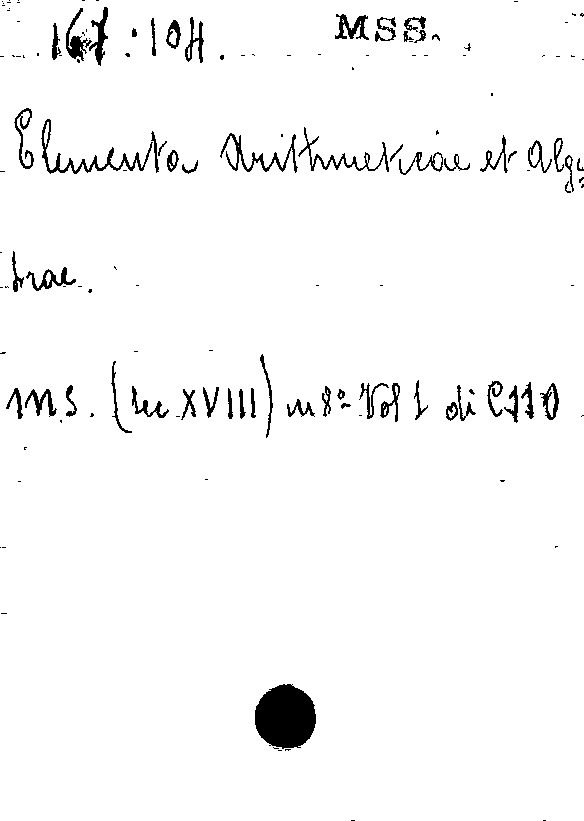 167:104. MSS.
Elementa Arithmeticae et Alge
brae.
MS. (sec XVIII) in 8º Vol 1 di C110